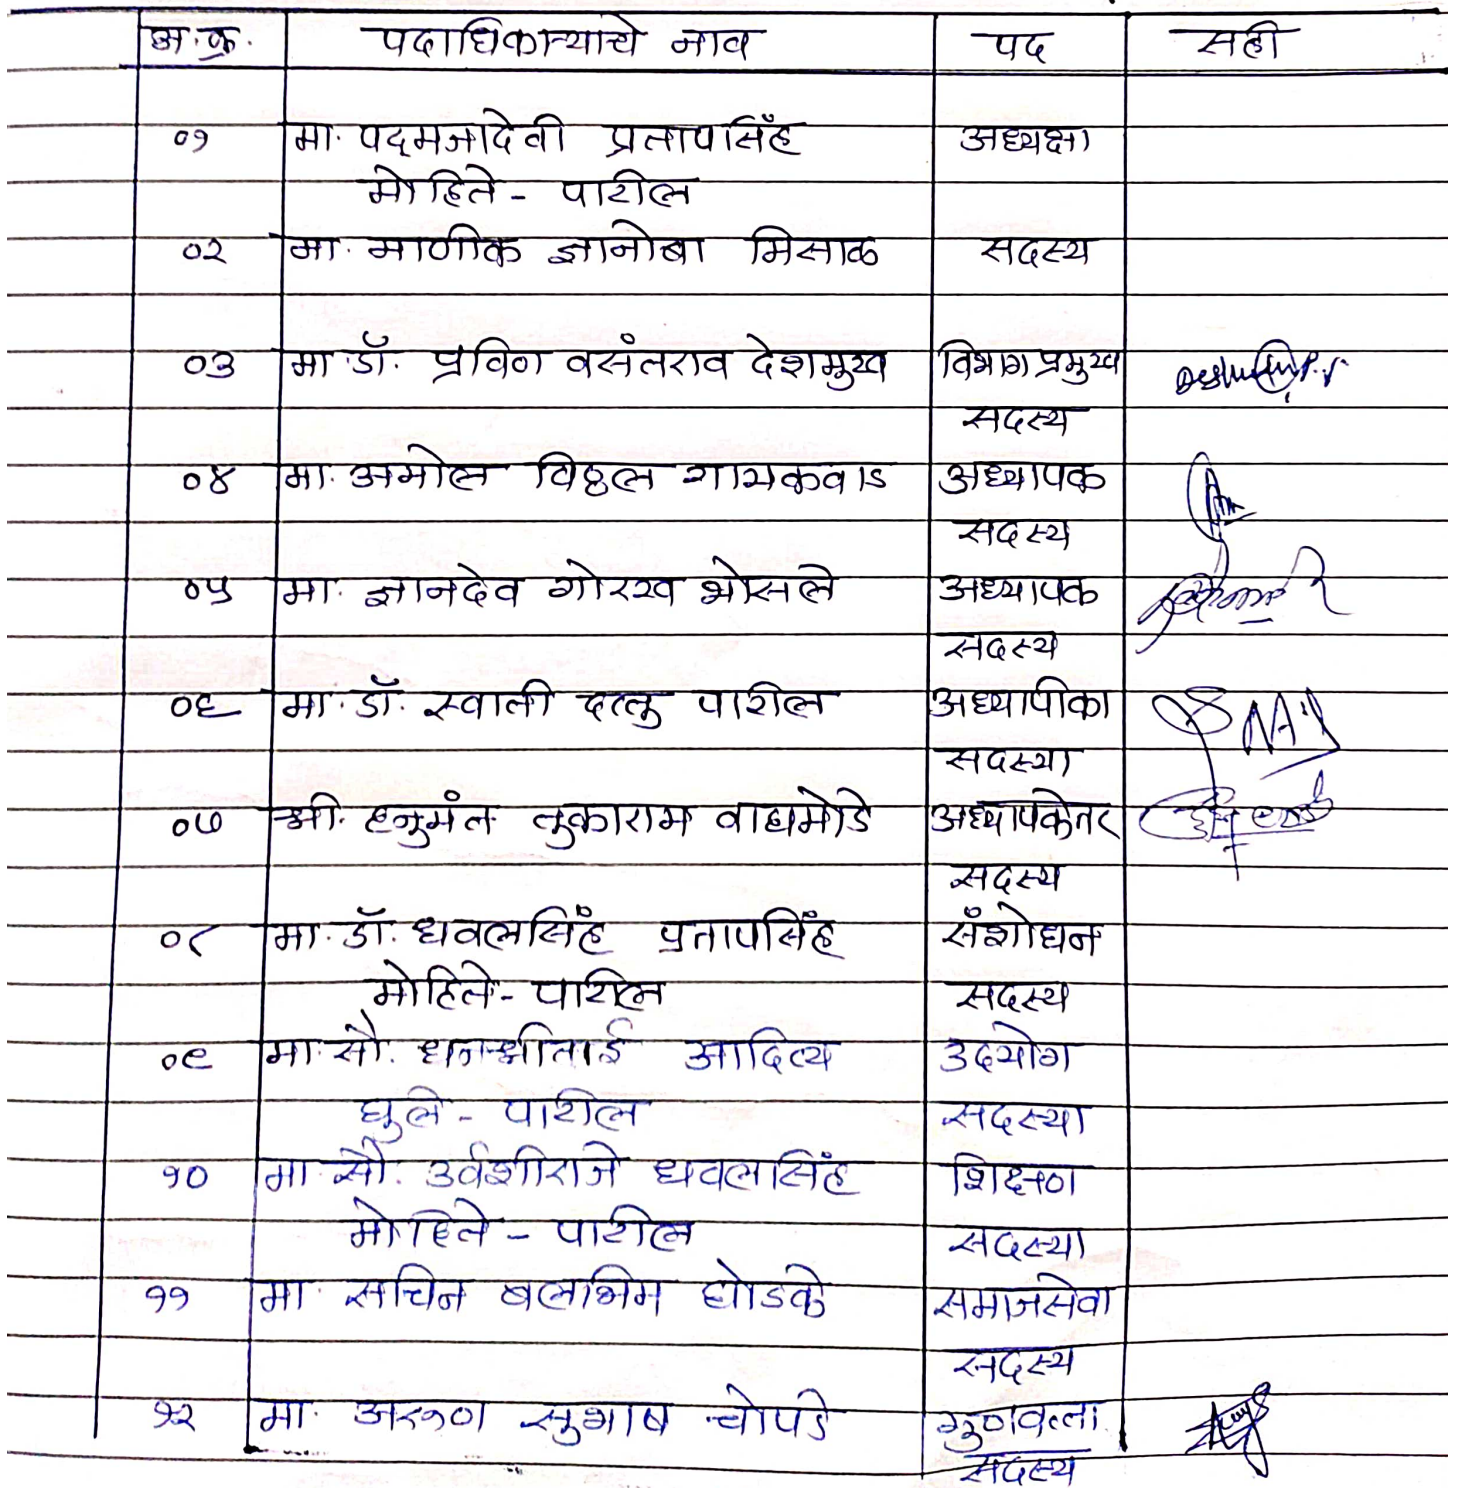 अ.क्र. पदाधिकाऱ्याचे नाव पद सही
०१ मा. पद्मजादेवी प्रतापसिंह अध्यक्षा
मोहिते - पाटील
०२ मा. माणीक ज्ञानोबा मिसाळ सदस्य
०३ मा. डॉ. प्रविण वसंतराव देशमुख विभाग प्रमुख
सदस्य
०४ मा. अमोल विठ्ठल गायकवाड अध्यापक
सदस्य
०५ मा. ज्ञानदेव गोरख भोसले अध्यापक
सदस्य
०६ मा. डॉ. स्वाती दत्तु पाटील अध्यापीका
सदस्या
०७ श्री. हनुमंत तुकाराम वाघमोडे अध्यापकेतर
सदस्य
०८ मा. डॉ. धवलसिंह प्रतापसिंह संशोधन
मोहिते - पाटील सदस्य
०९ मा. सौ. धनश्रीताई आदित्य उदयोग
घुले - पाटील सदस्या
१० मा. सौ. उर्वशीराजे धवलसिंह शिक्षण
मोहिते - पाटील सदस्या
११ मा. सचिन बलभिम घोडके समाजसेवा
सदस्य
१२ मा. अरूण सुभाष चोपडे गुणवत्ता
सदस्य